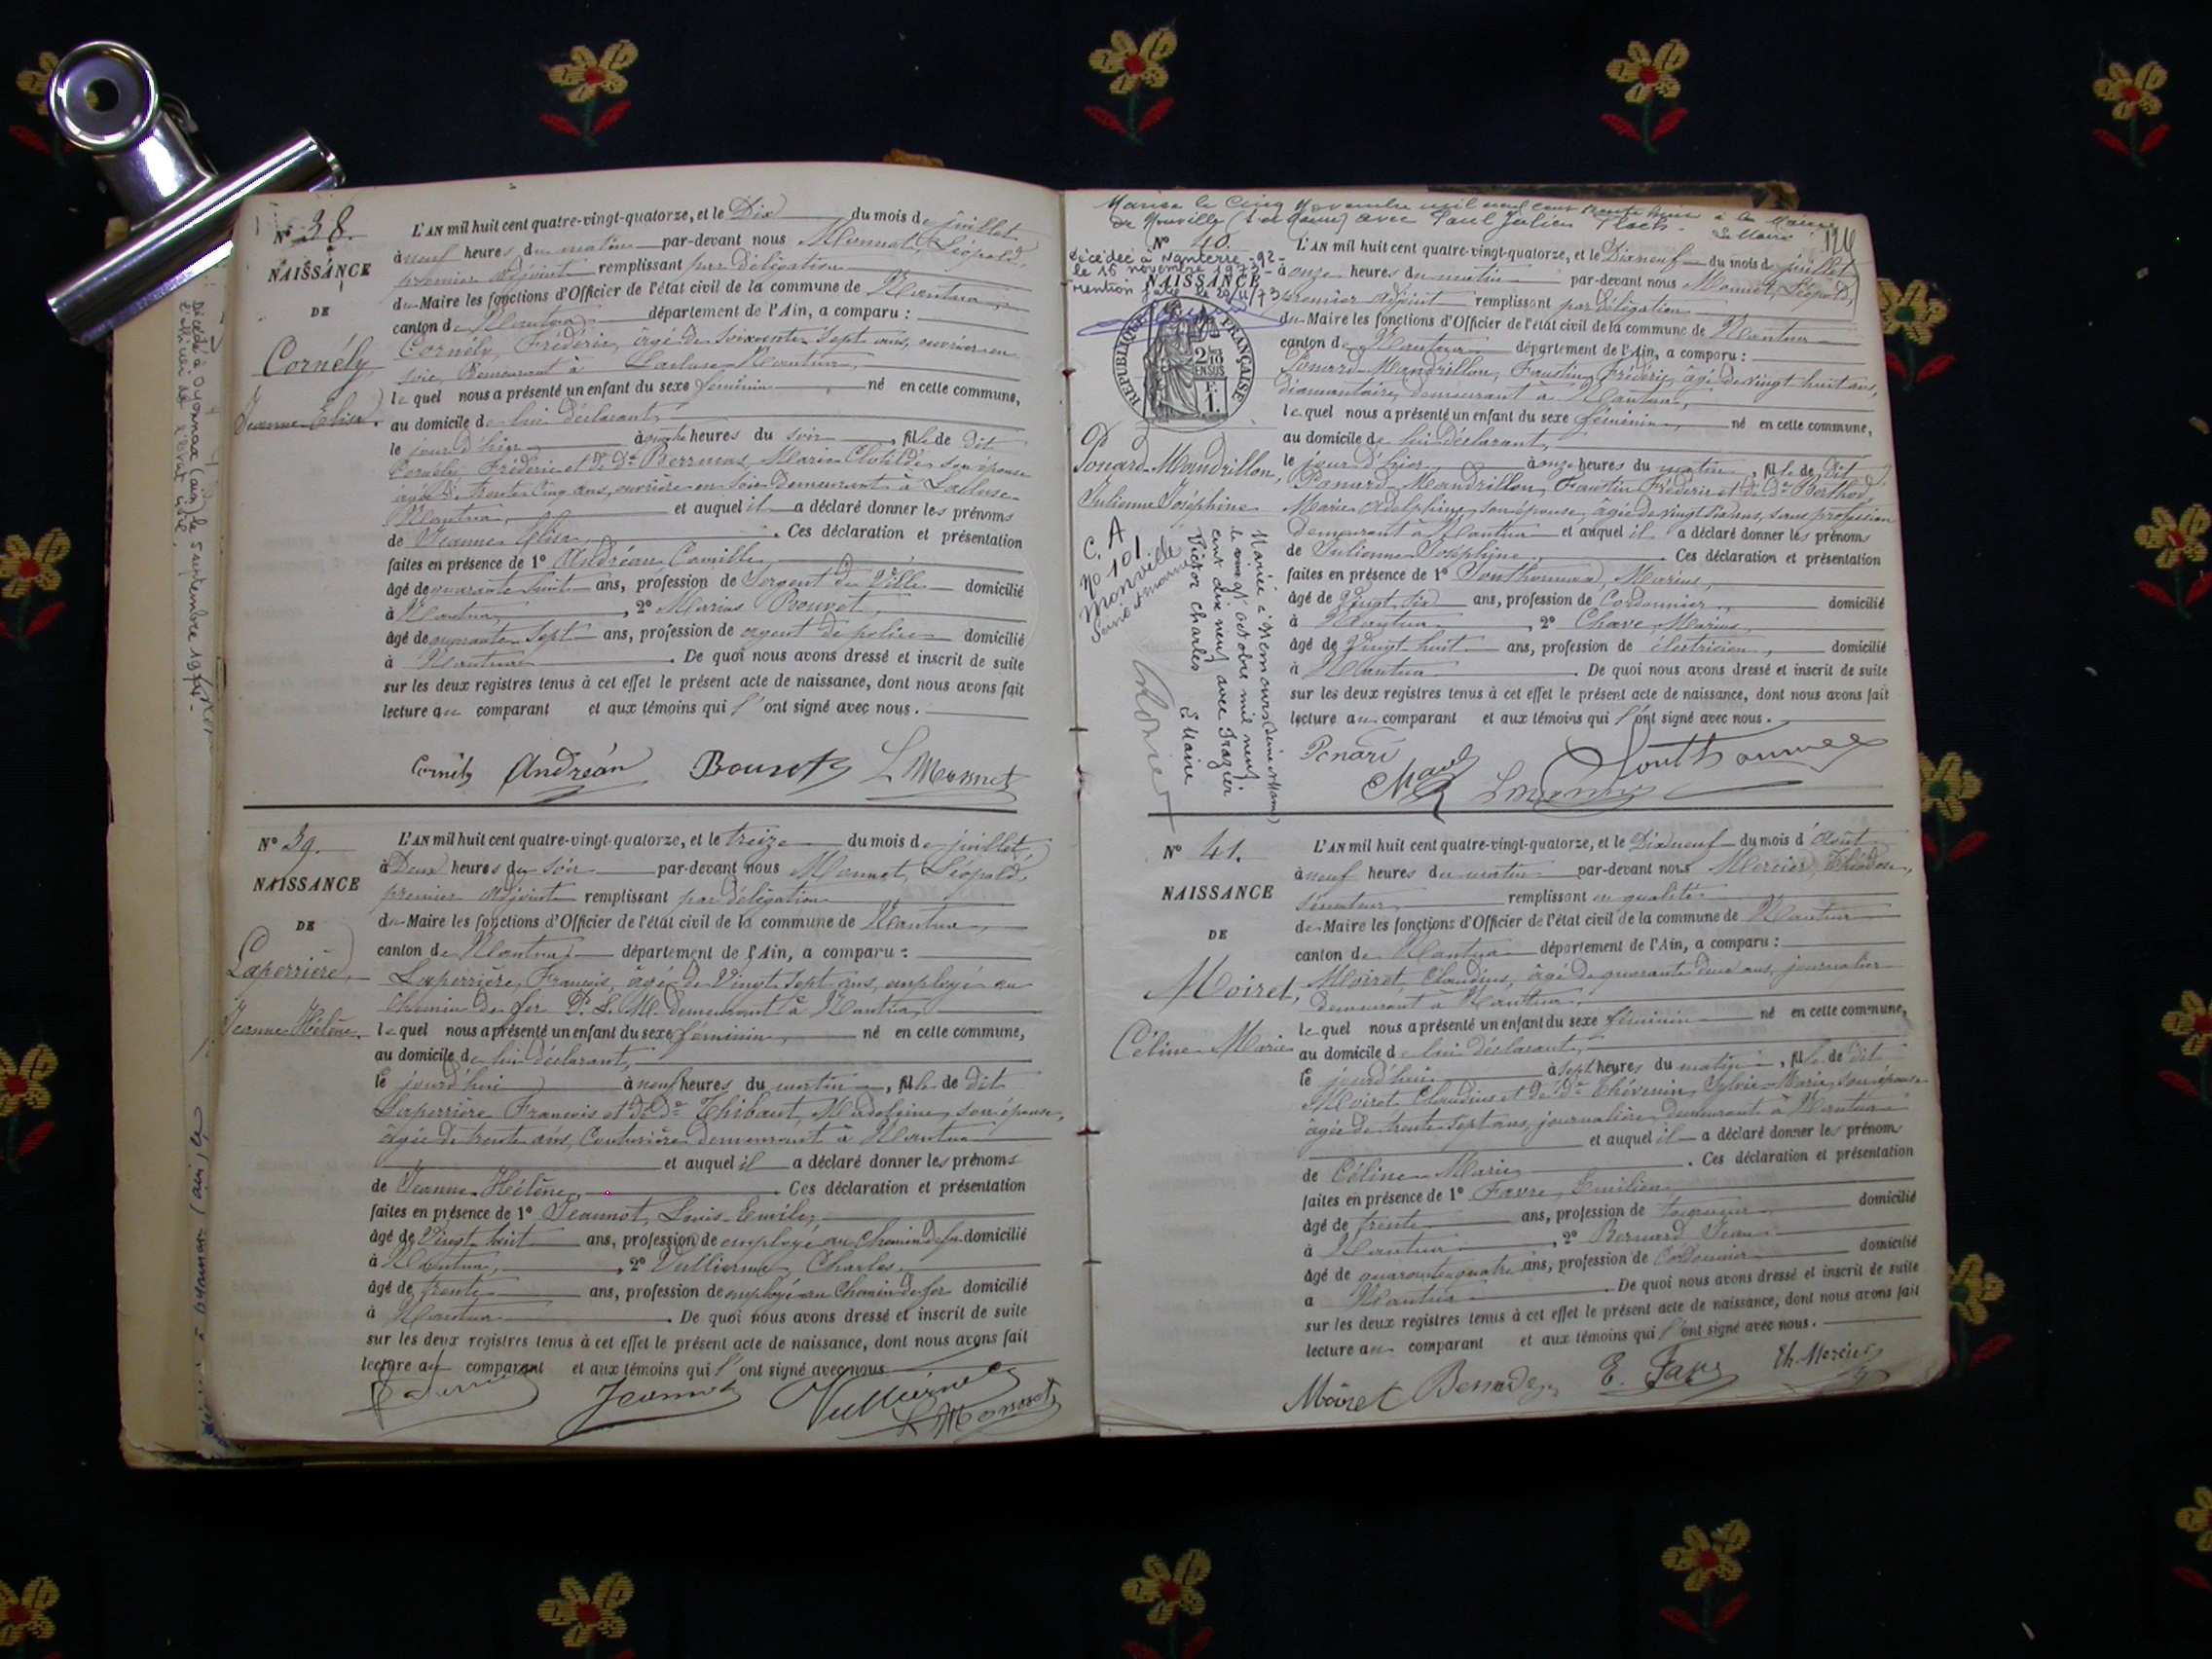 N° 38.
NAISSANCE
DE
Cornély
Jeanne Elisa.
L'AN mil huit cent quatre-vingt-quatorze, et le Dix du mois de juillet
à neuf heures du matin par-devant nous Monnet, Léopold,
premier adjoint remplissant par délégation
du Maire les fonctions d'Officier de l'état civil de la commune de Nantua,
canton de Nantua département de l'Ain, a comparu :
Cornély, Frédéric, âgé de soixante sept ans, ouvrier en
soie, demeurant à Lacluse Nantua,
lequel nous a présenté un enfant du sexe féminin né en cette commune,
au domicile de lui déclarant,
le jour d'hier à heures du soir, fille de dit
Cornély Frédéric et de De Marie Clotilde, son épouse
âgée de trente cinq ans, ouvrière en soie demeurant à Lacluse
Nantua, et auquel il a déclaré donner les prénoms
de Jeanne Elisa. Ces déclaration et présentation
faites en présence de 1° Andréan Camille,
âgé de quarante huit ans, profession de Sergent de Ville domicilié
à Nantua, 2° Marius Bouvet,
âgé de quarante sept ans, profession de agent de police domicilié
à Nantua. De quoi nous avons dressé et inscrit de suite
sur les deux registres tenus à cet effet le présent acte de naissance, dont nous avons fait
lecture au comparant et aux témoins qui l'ont signé avec nous.
Cornély Andréan Bouvet L Monnet
N° 39.
NAISSANCE
DE
Laperrière,
Jeanne Hélène.
L'AN mil huit cent quatre-vingt-quatorze, et le treize du mois de juillet
à Deux heures du soir par-devant nous Monnet, Léopold,
premier adjoint remplissant par délégation
du Maire les fonctions d'Officier de l'état civil de la commune de Nantua,
canton de Nantua département de l'Ain, a comparu :
Laperrière, François, âgé de Vingt sept ans, employé au
chemin de fer P. L. M. demeurant à Nantua,
lequel nous a présenté un enfant du sexe féminin, né en cette commune,
au domicile de lui déclarant,
le jourd'hui à neuf heures du matin, fille de dit
Laperrière François et de De Thibaut, Madeleine, son épouse,
âgée de trente ans, Couturière demeurant à Nantua
et auquel il a déclaré donner les prénoms
de Jeanne Hélène. Ces déclaration et présentation
faites en présence de 1° Jeannot, Louis-Emile,
âgé de Vingt huit ans, profession de employé au chemin de fer domicilié
à Nantua, 2° Vuillerme, Charles,
âgé de trente ans, profession de employé au Chemin de fer domicilié
à Nantua. De quoi nous avons dressé et inscrit de suite
sur les deux registres tenus à cet effet le présent acte de naissance, dont nous avons fait
lecture au comparant et aux témoins qui l'ont signé avec nous
Jeannot Vuillerme L Monnet
Mariée le Cinq Novembre mil neuf cent trente huit à la Mairie
de (S. et Marne) avec Paul Julien
Le Maire
126
N° 40.
Décédée à Nanterre -92-
le 16 novembre 1973-
NAISSANCE
mention le 20/11/73
RÉPUBLIQUE FRANÇAISE
Ponard-Mandrillon,
Julienne Joséphine
C. A
N° 101.
Seine et Marne
Mariée à Nemours (Seine et Marne)
le vingt octobre mil neuf
cent dix neuf avec Frazier
Victor Charles
Le Maire
L'AN mil huit cent quatre-vingt-quatorze, et le Dixneuf du mois de juillet
à onze heures du matin par-devant nous Monnet, Léopold,
premier adjoint remplissant par délégation
du Maire les fonctions d'Officier de l'état civil de la commune de Nantua
canton de Nantua département de l'Ain, a comparu :
Ponard-Mandrillon, Faustin Frédéric, âgé de vingt huit ans,
diamantaire, demeurant à Nantua,
lequel nous a présenté un enfant du sexe féminin, né en cette commune,
au domicile de lui déclarant,
le jour d'hier à onze heures du matin, fille de dit
Ponard-Mandrillon, Faustin Frédéric et de De Berthod,
Marie Adelphine, son épouse, âgée de vingt ans, sans profession
demeurant à Nantua et auquel il a déclaré donner les prénoms
de Julienne Joséphine. Ces déclaration et présentation
faites en présence de 1° Marius,
âgé de Vingt six ans, profession de Cordonnier, domicilié
à Nantua, 2° Chave, Marius,
âgé de Vingt huit ans, profession de électricien, domicilié
à Nantua. De quoi nous avons dressé et inscrit de suite
sur les deux registres tenus à cet effet le présent acte de naissance, dont nous avons fait
lecture au comparant et aux témoins qui l'ont signé avec nous.
Ponard
N° 41.
NAISSANCE
DE
Moiret,
Céline Marie
L'AN mil huit cent quatre-vingt-quatorze, et le Dixneuf du mois d'Août
à neuf heures du matin par-devant nous Mercier, Théodore,
sénateur, remplissant en qualité
de Maire les fonctions d'Officier de l'état civil de la commune de Nantua
canton de Nantua département de l'Ain, a comparu :
Moiret Claudius, âgé de quarante deux ans, journalier
demeurant à Nantua,
lequel nous a présenté un enfant du sexe féminin né en cette commune,
au domicile de lui déclarant,
le jourd'hui à sept heures du matin, fille de dit
Moiret Claudius et de De Thévenin, Sylvie-Marie, son épouse
âgée de trente sept ans, journalière, demeurant à Nantua
et auquel il a déclaré donner les prénoms
de Céline Marie. Ces déclaration et présentation
faites en présence de 1° Favre, Emilien
âgé de trente ans, profession de domicilié
à Nantua, 2° Bernard Jean
âgé de quarante quatre ans, profession de Cordonnier domicilié
a Nantua. De quoi nous avons dressé et inscrit de suite
sur les deux registres tenus à cet effet le présent acte de naissance, dont nous avons fait
lecture au comparant et aux témoins qui l'ont signé avec nous.
Moiret Bernard E. Favre Th. Mercier